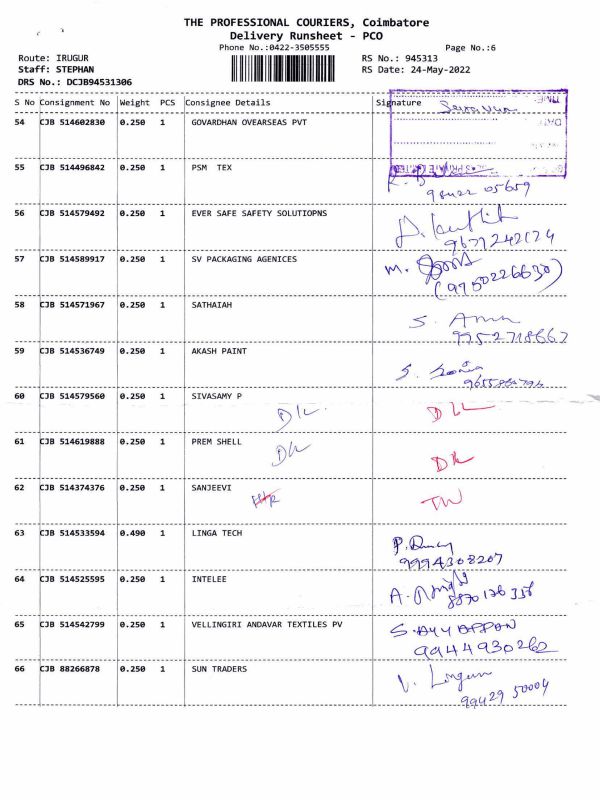 THE PROFESSIONAL COURIERS, Coimbatore
Delivery Runsheet - PCO
Phone No.:0422-3505555
Page No.:6
Route: IRUGUR
RS No.: 945313
Staff: STEPHAN
RS Date: 24-May-2022
DRS No.: DCJB94531306
S No Consignment No Weight PCS Consignee Details Signature
54 CJB 514602830 0.250 1 GOVARDHAN OVEARSEAS PVT
55 CJB 514496842 0.250 1 PSM TEX
56 CJB 514579492 0.250 1 EVER SAFE SAFETY SOLUTIOPNS
57 CJB 514589917 0.250 1 SV PACKAGING AGENICES
(9750226630)
58 CJB 514571967 0.250 1 SATHAIAH
S. Arun
9952718667
59 CJB 514536749 0.250 1 AKASH PAINT
60 CJB 514579560 0.250 1 SIVASAMY P
61 CJB 514619888 0.250 1 PREM SHELL
62 CJB 514374376 0.250 1 SANJEEVI
63 CJB 514533594 0.490 1 LINGA TECH
9994308207
64 CJB 514525595 0.250 1 INTELEE
65 CJB 514542799 0.250 1 VELLINGIRI ANDAVAR TEXTILES PV
S.AYYAPPAN
9944930262
66 CJB 88266878 0.250 1 SUN TRADERS
99429 50004